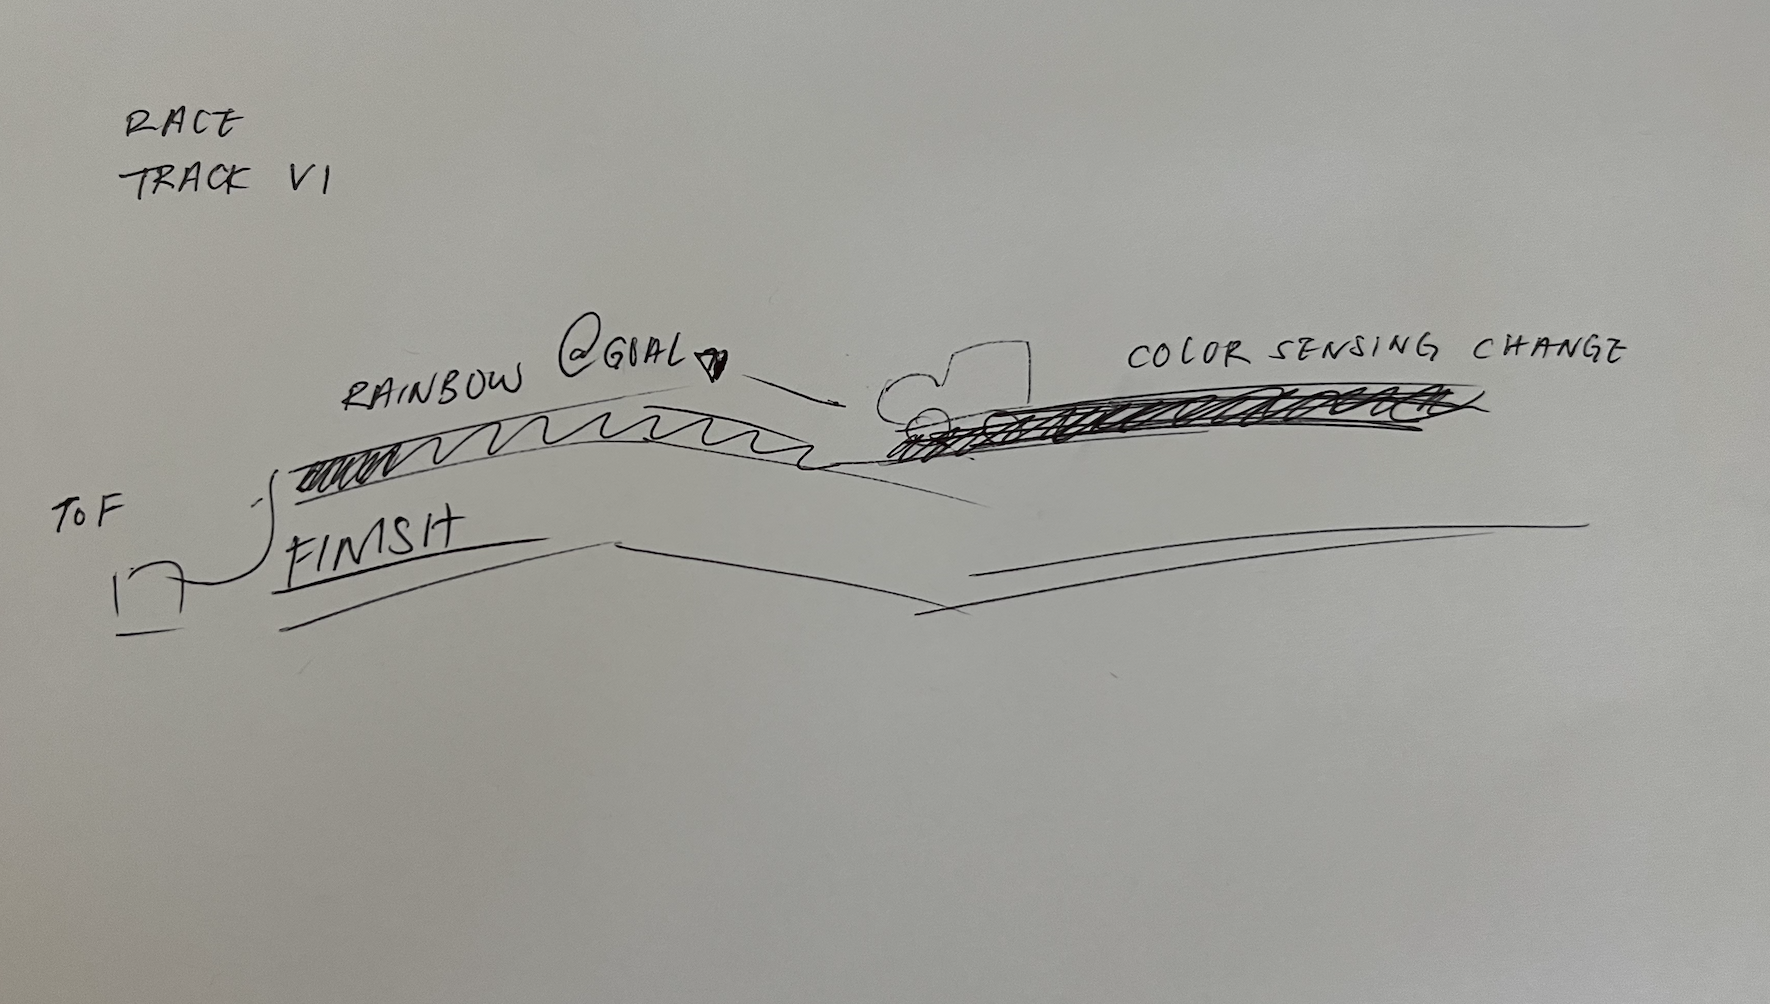 RACE
TRACK V1
RAINBOW @GOAL
COLOR SENSING CHANGE
ToF
FINISH